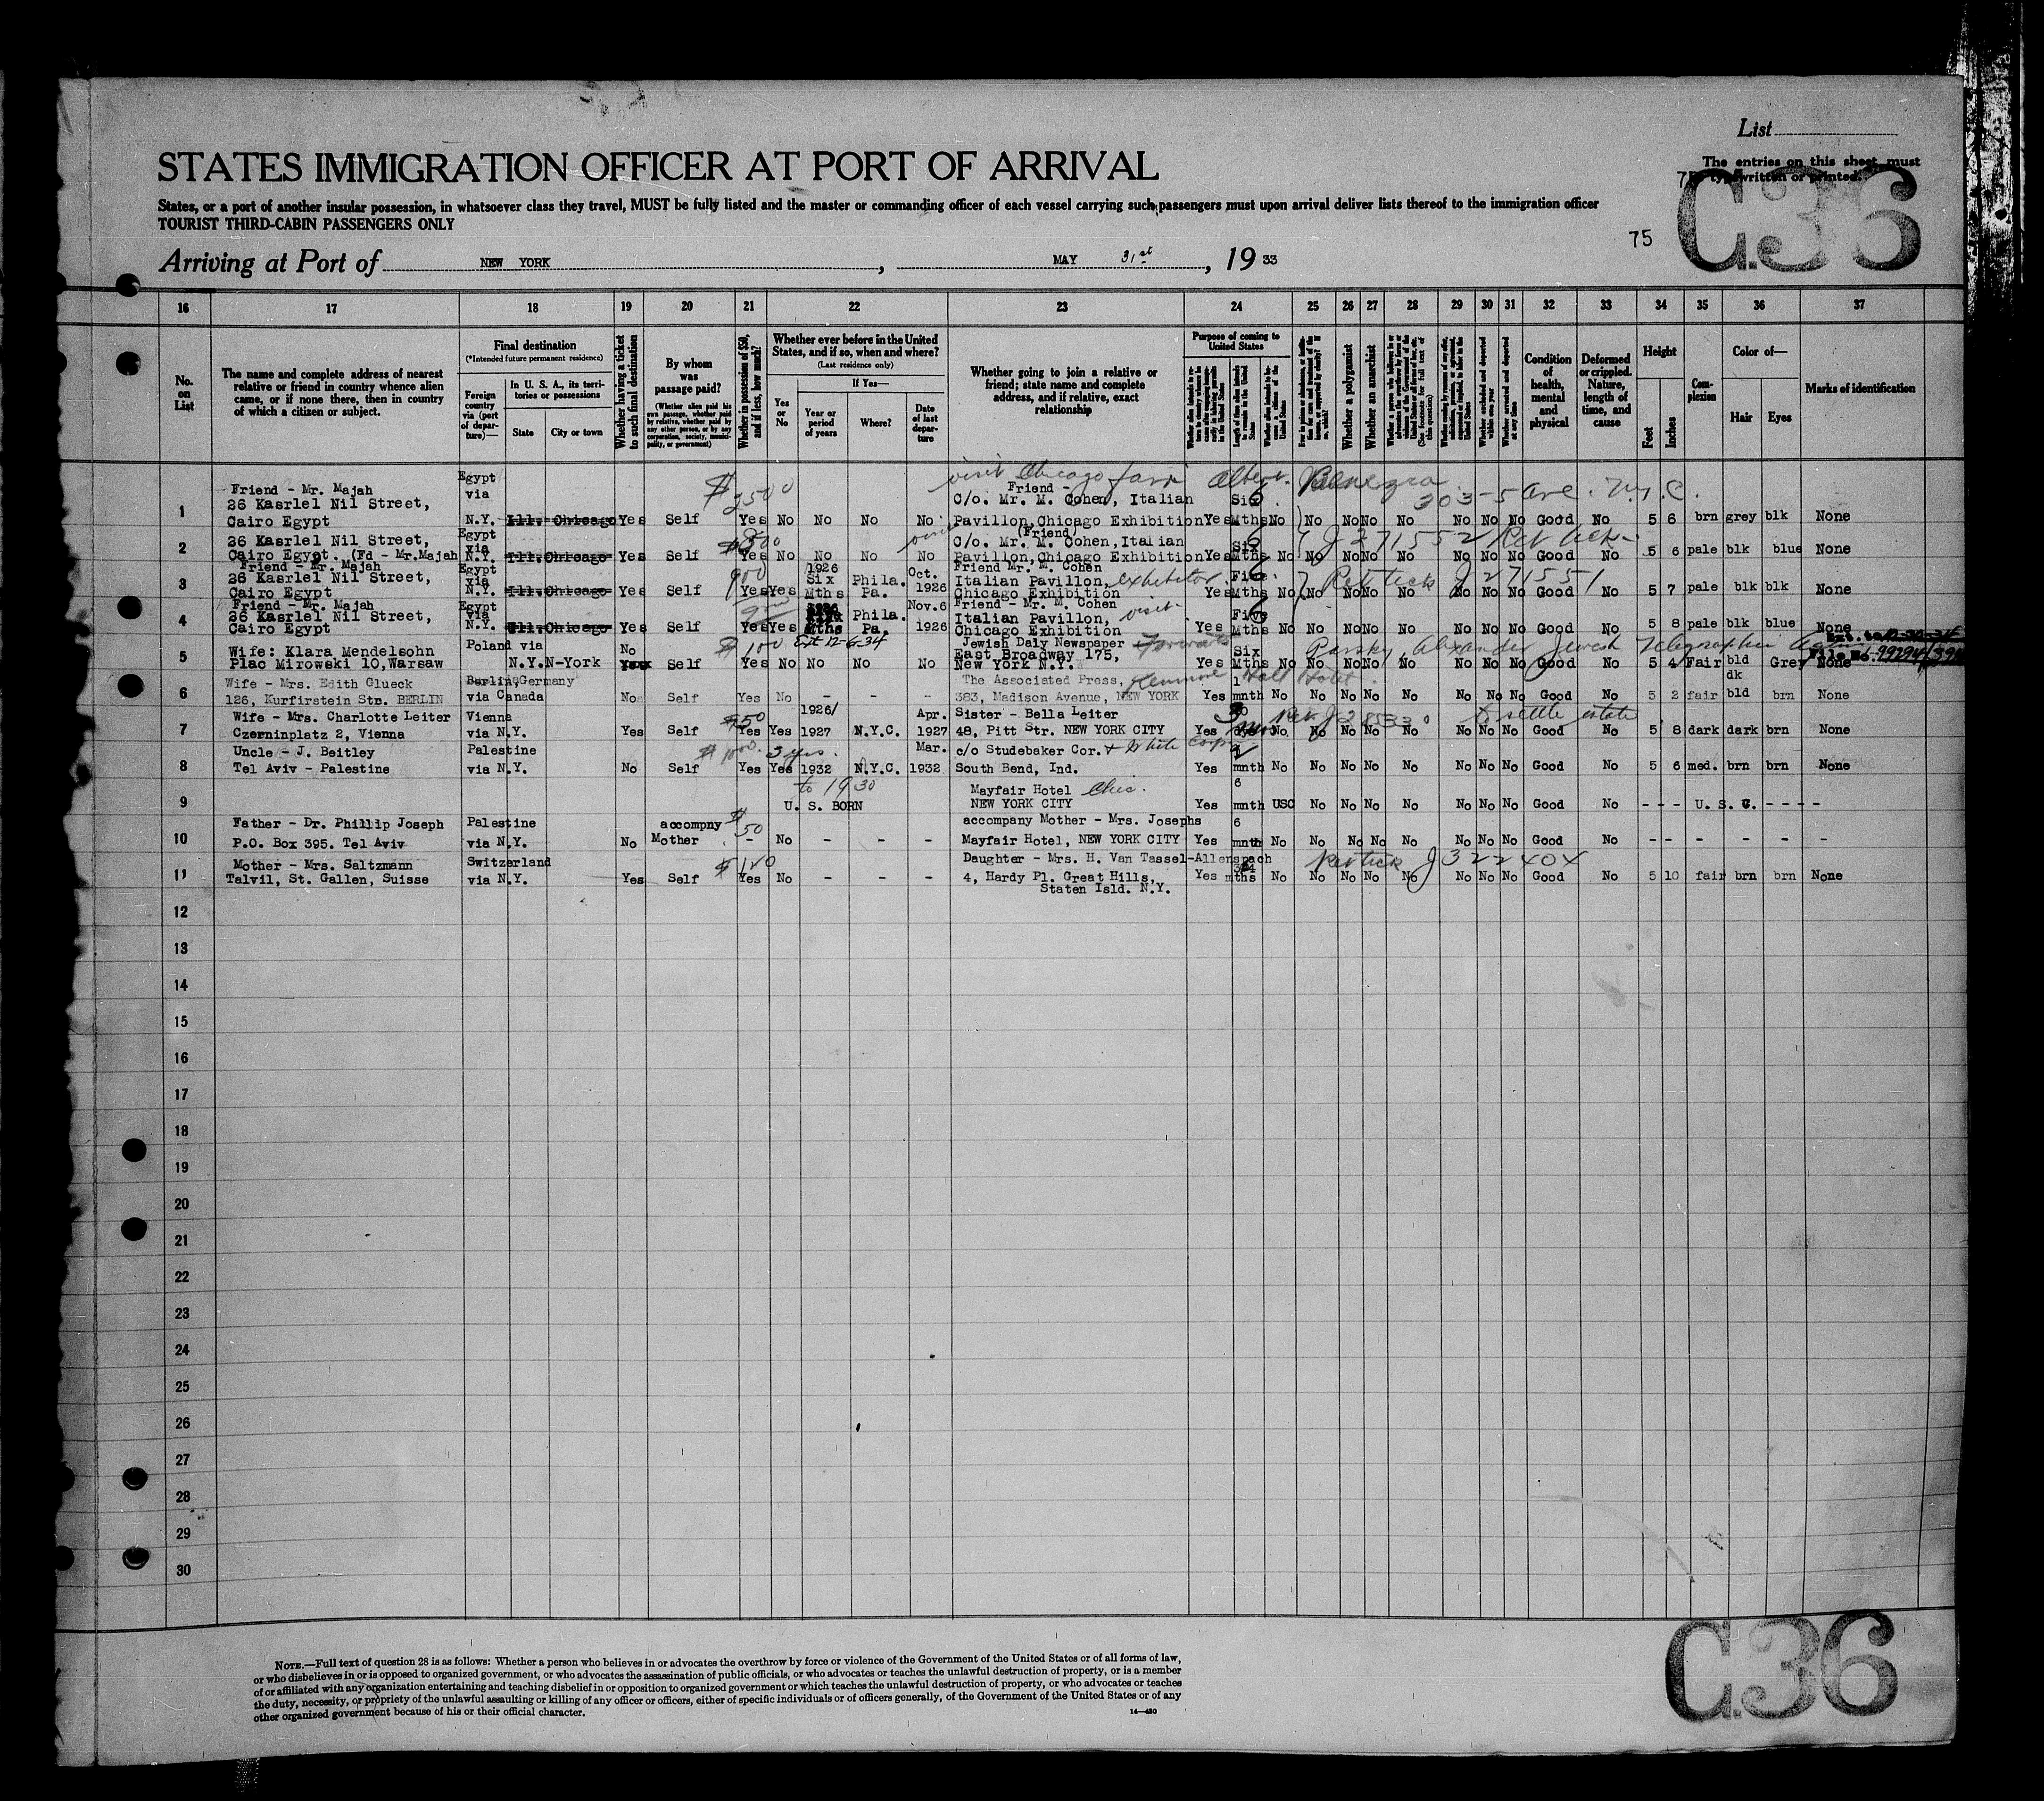 List
STATES IMMIGRATION OFFICER AT PORT OF ARRIVAL
The entries on this sheet must
be typewritten or printed.
C.36
States, or a port of another insular possession, in whatsoever class they travel, MUST be fully listed and the master or commanding officer of each vessel carrying such passengers must upon arrival deliver lists thereof to the immigration officer
TOURIST THIRD-CABIN PASSENGERS ONLY
75
Arriving at Port of NEW YORK , MAY 31st , 19 33
16 17 18 19 20 21 22 23 24 25 26 27 28 29 30 31 32 33 34 35 36 37
No. on List
The name and complete address of nearest relative or friend in country whence alien came, or if none there, then in country of which a citizen or subject.
Final destination
(*Intended future permanent residence)
Foreign country via (port of departure)—
In U. S. A., its territories or possessions
State City or town
Whether having a ticket to such final destination
By whom was passage paid?
(Whether alien paid his own passage, whether paid by relative, whether paid by any other person, or by any corporation, society, municipality, or government)
Whether in possession of $50, and if less, how much?
Whether ever before in the United States, and if so, when and where?
(Last residence only)
Yes or No
If Yes—
Year or period of years
Where?
Date of last departure
Whether going to join a relative or friend; state name and complete address, and if relative, exact relationship
Purpose of coming to United States
Whether a polygamist
Whether an anarchist
Condition of health, mental and physical
Deformed or crippled. Nature, length of time, and cause
Height
Feet Inches
Complexion
Color of—
Hair Eyes
Marks of identification
visit Chicago fair Albert 303-5 Ave. N.Y.C.
1 Friend - Mr. Majah
26 Kasrlel Nil Street,
Cairo Egypt
Egypt via N.Y. Ill. Chicago Yes Self $2500 Yes No No No No
Friend -
C/o. Mr. M. Cohen, Italian
Pavillon, Chicago Exhibition Yes Six Mths No No No No No No No No Good No 5 6 brn grey blk None
2 26 Kasrlel Nil Street,
Cairo Egypt. (Fd - Mr.Majah
Egypt via N.Y. Ill.Chicago Yes Self Yes No No No No
(Friend)
C/o. Mr. M. Cohen, Italian
Pavillon, Chicago Exhibition Yes Six Mths No No No No No No No No Good No 5 6 pale blk blue None
J 271552 Ret tick
3 Friend - Mr. Majah
26 Kasrlel Nil Street,
Cairo Egypt
Egypt via N.Y. Ill. Chicago Yes Self 900 Yes Yes 1926 Six Mths Phila. Pa. Oct. 1926
Friend Mr. M. Cohen
Italian Pavillon, exhibitor
Chicago Exhibition Yes Five Mths No No No No No No No No Good No 5 7 pale blk blk None
Ret tick J 271551
4 Friend - Mr. Majah
26 Kasrlel Nil Street,
Cairo Egypt
Egypt via N.Y. Ill.Chicago Yes Self Yes Yes Mths Phila. Pa. Nov.6 1926
Friend - Mr. M. Cohen
Italian Pavillon, visit
Chicago Exhibition Yes Five Mths No No No No No No No No Good No 5 8 pale blk blue None
5 Wife: Klara Mendelsohn
Plac Mirowski 10, Warsaw
Poland via N.Y. N-York No Self $100 Yes No No No No
Ext 12-6-34
Jewish Daly Newspaper Forwards
East Broadway 175,
New York N.Y. Yes Six Mths No No No No No No No No Good No 5 4 Fair bld Grey None
Alexander Jewish Telegraphic
6 Wife - Mrs. Edith Glueck
126, Kurfirstein Stm. BERLIN
Berlin, Germany
via Canada No Self Yes No - - -
The Associated Press, Kenmore Hall Hotel
383, Madison Avenue, NEW YORK Yes 1 mnth No No No No No No No No Good No 5 2 fair dk bld brn None
7 Wife - Mrs. Charlotte Leiter
Czerninplatz 2, Vienna
Vienna via N.Y. Yes Self $50 Yes Yes 1926/ 1927 N.Y.C. Apr. 1927
Sister - Bella Leiter
48, Pitt Str. NEW YORK CITY Yes No No No No No No No No Good No 5 8 dark dark brn None
to settle estate
8 Uncle - J. Beitley
Tel Aviv - Palestine
Palestine via N.Y. No Self Yes Yes 3 yrs. 1932 N.Y.C. Mar. 1932
to 1930
c/o Studebaker Cor. + White Corp
South Bend, Ind. Yes mnth No No No No No No No No Good No 5 6 med. brn brn None
9 U. S. BORN
Mayfair Hotel Chic.
NEW YORK CITY Yes 6 mnth USC No No No No No No No Good No - - - U. S. C. - - - -
10 Father - Dr. Phillip Joseph
P.O. Box 395. Tel Aviv
Palestine via N.Y. No accompny Mother $50 - No - - -
accompany Mother - Mrs. Josephs
Mayfair Hotel, NEW YORK CITY Yes 6 mnth No No No No No No No No Good No -- - - - -
11 Mother - Mrs. Saltzmann
Talvil, St. Gallen, Suisse
Switzerland via N.Y. Yes Self Yes No - - -
Daughter - Mrs. H. Van Tassel-Allenspach
4, Hardy Pl. Great Hills,
Staten Isld. N.Y. Yes mths No No No No No No No No Good No 5 10 fair brn brn None
Ret tick J 322404
12
13
14
15
16
17
18
19
20
21
22
23
24
25
26
27
28
29
30
C.36
NOTE.—Full text of question 28 is as follows: Whether a person who believes in or advocates the overthrow by force or violence of the Government of the United States or of all forms of law,
or who disbelieves in or is opposed to organized government, or who advocates the assassination of public officials, or who advocates or teaches the unlawful destruction of property, or is a member
of or affiliated with any organization entertaining and teaching disbelief in or opposition to organized government or which teaches the unlawful destruction of property, or who advocates or teaches
the duty, necessity, or propriety of the unlawful assaulting or killing of any officer or officers, either of specific individuals or of officers generally, of the Government of the United States or of any
other organized government because of his or their official character.
14—430